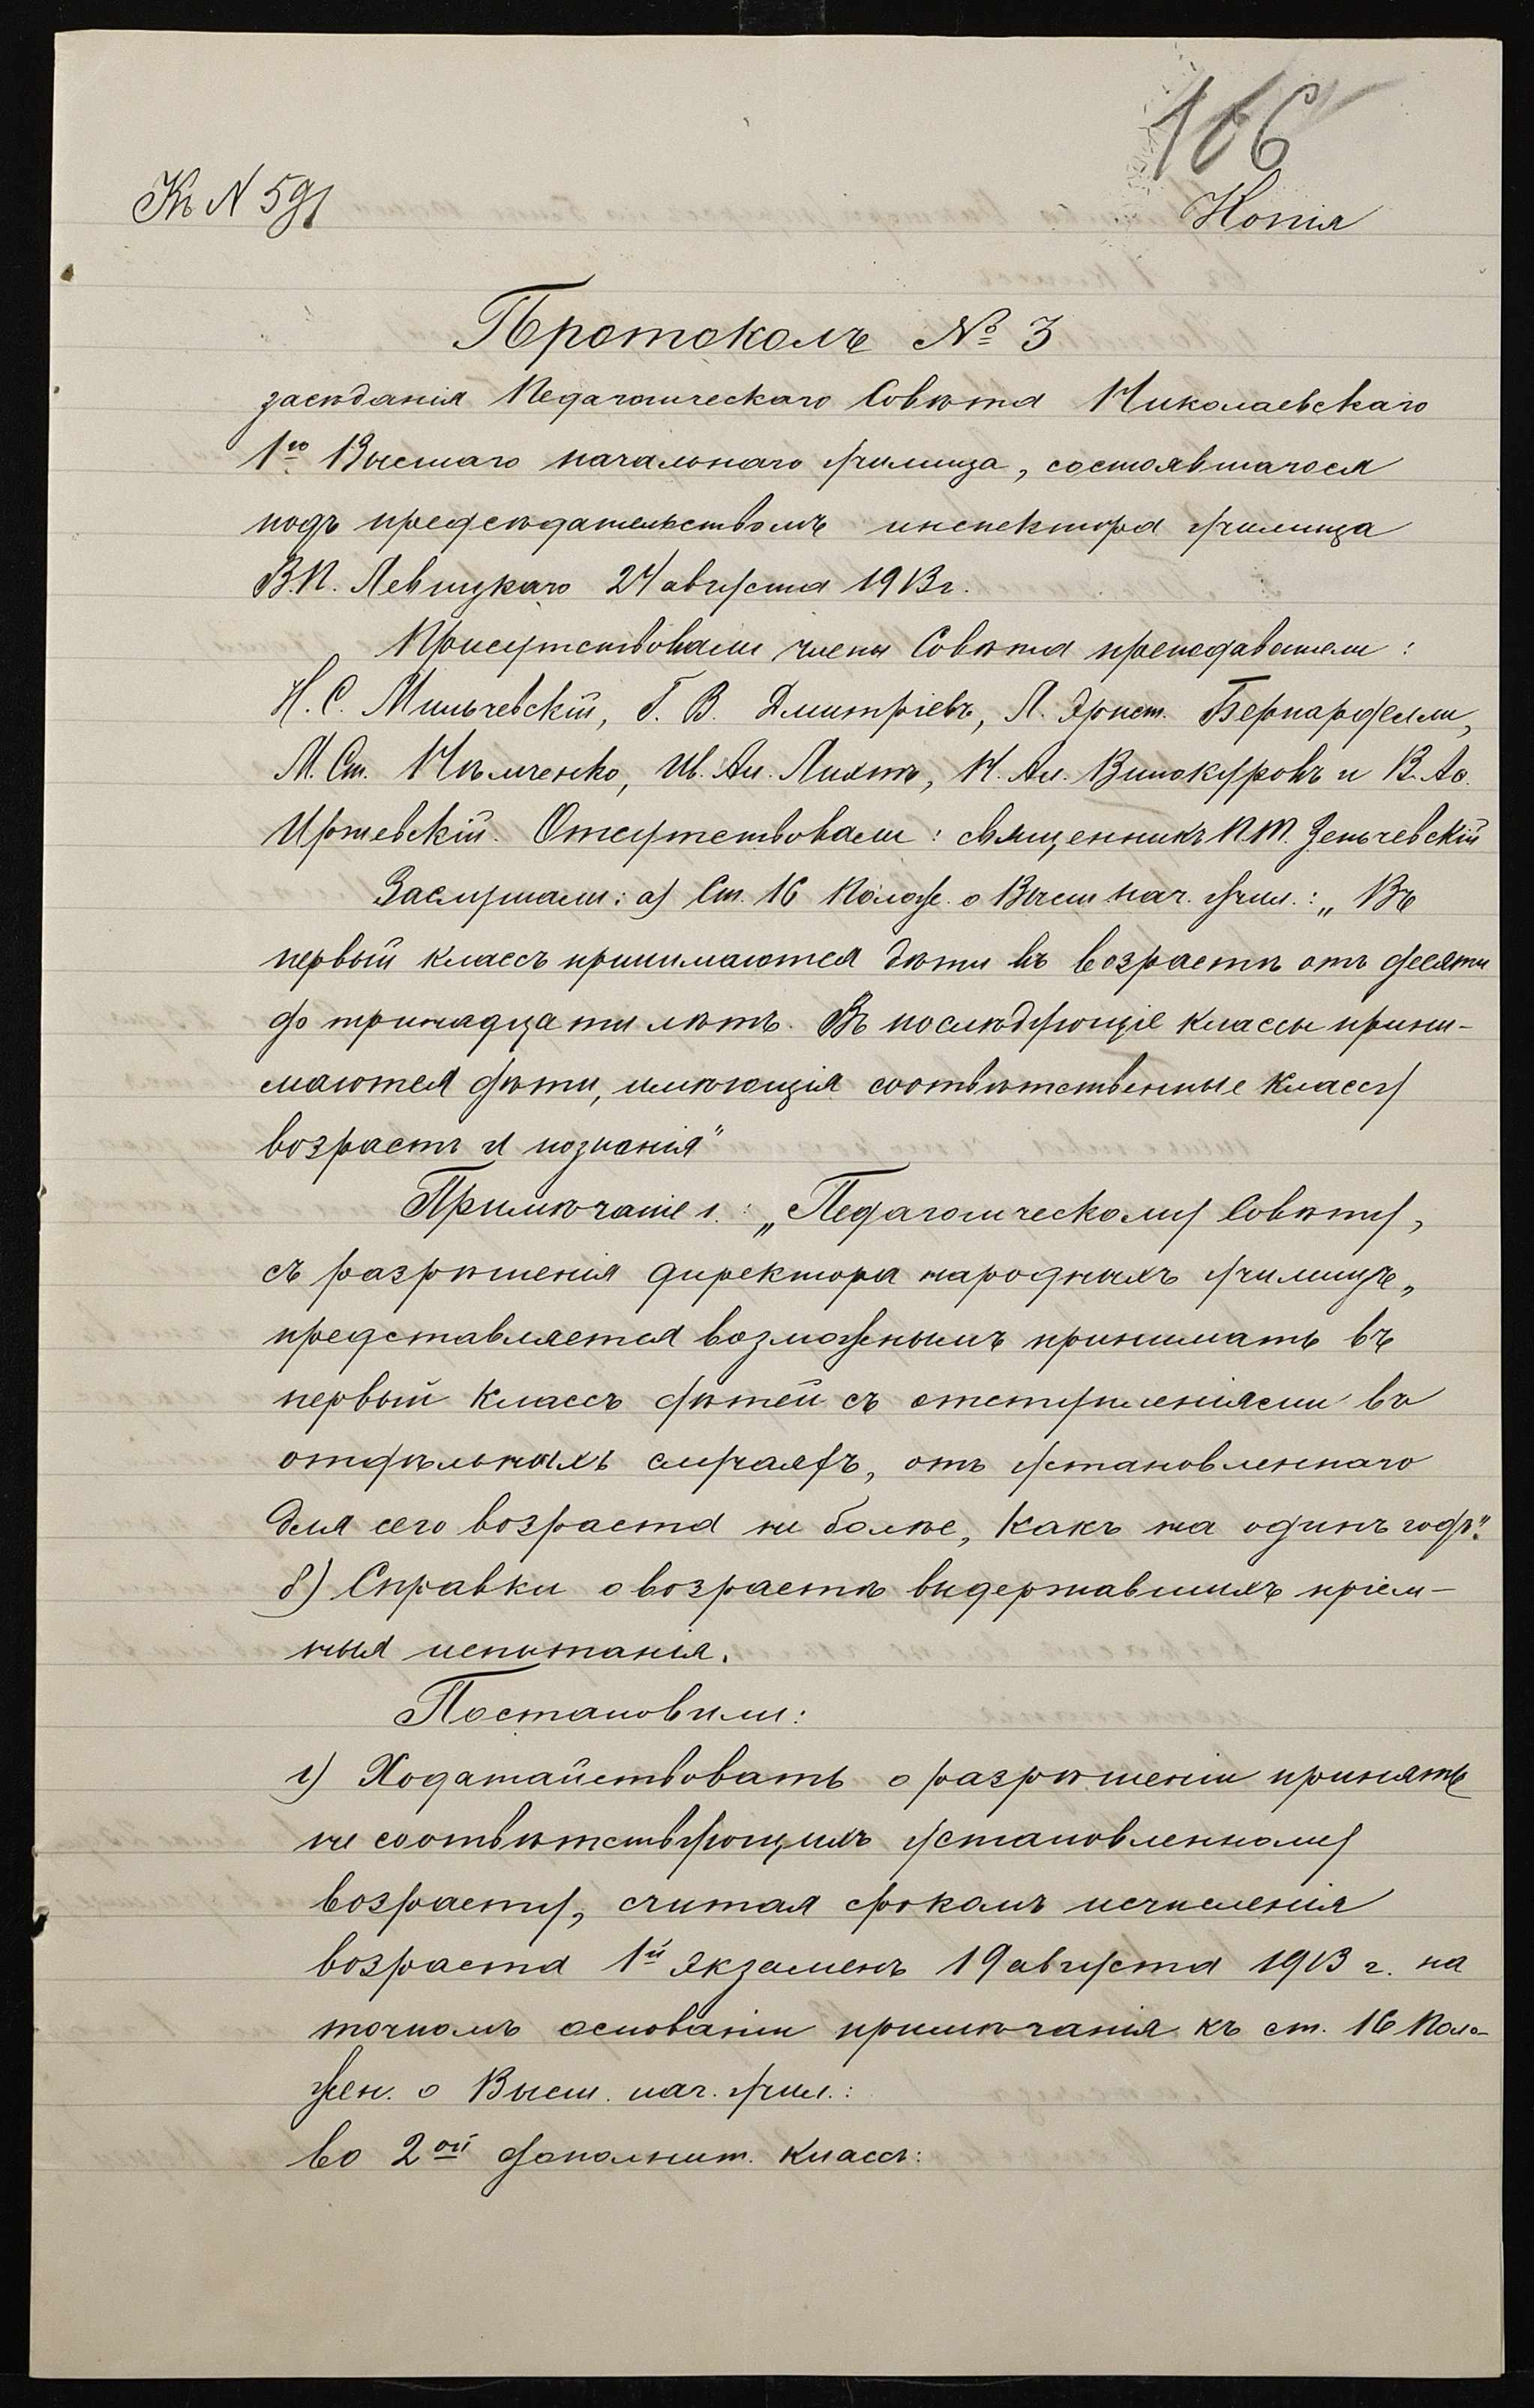 106
Къ N 591
Копія
Протоколъ № 3
засѣданія Педагогическаго Совѣта Николаевскаго
1го Высшаго начальнаго училища, состоявшагося
подъ предсѣдательствомъ инспектора училища
В.П. Левицкаго 24 августа 1913 г.
Присутствовали члены Совѣта преподаватели:
Н. С. Мильчевскій, Г. В. Дмитріевъ, Л. Эрнст. Бернарделли,
М. Ст. Нѣмченко, Ив. Ан. Лихтъ, Н. Ан. Винокуровъ и В. Ао.
Иржевскій. Отсутствовали: священникъ П.Т. Зенчевскій
Заслушали: а) Ст. 16 Полож. о Высш нач. учил.: „Въ
первый классъ принимаются дѣти въ возрастѣ отъ десяти
до тринадцати лѣтъ. Въ послѣдующіе классы прини-
маются дѣти, имѣющія соотвѣтственные классу
возрастъ и познанія"
Примѣчаніе 1.: „Педагогическому Совѣту,
съ разрѣшенія директора народныхъ училищъ,
представляется возможнымъ принимать въ
первый классъ дѣтей съ отступленіями въ
отдѣльныхъ случаяхъ, отъ установленнаго
для сего возраста не болѣе, какъ на одинъ годъ".
б) Справки о возрастѣ выдержавшихъ пріем-
ныя испытанія.
Постановили:
1) Ходатайствовать о разрѣшеніи принять
не соотвѣтствующихъ установленному
возрасту, считая срокомъ исчисленія
возраста 1й экзаменъ 19 августа 1913 г. на
точномъ основаніи примѣчанія къ ст. 16 Поло-
жен. о Высш. нач. учил.:
во 2ой дополнит. классъ: